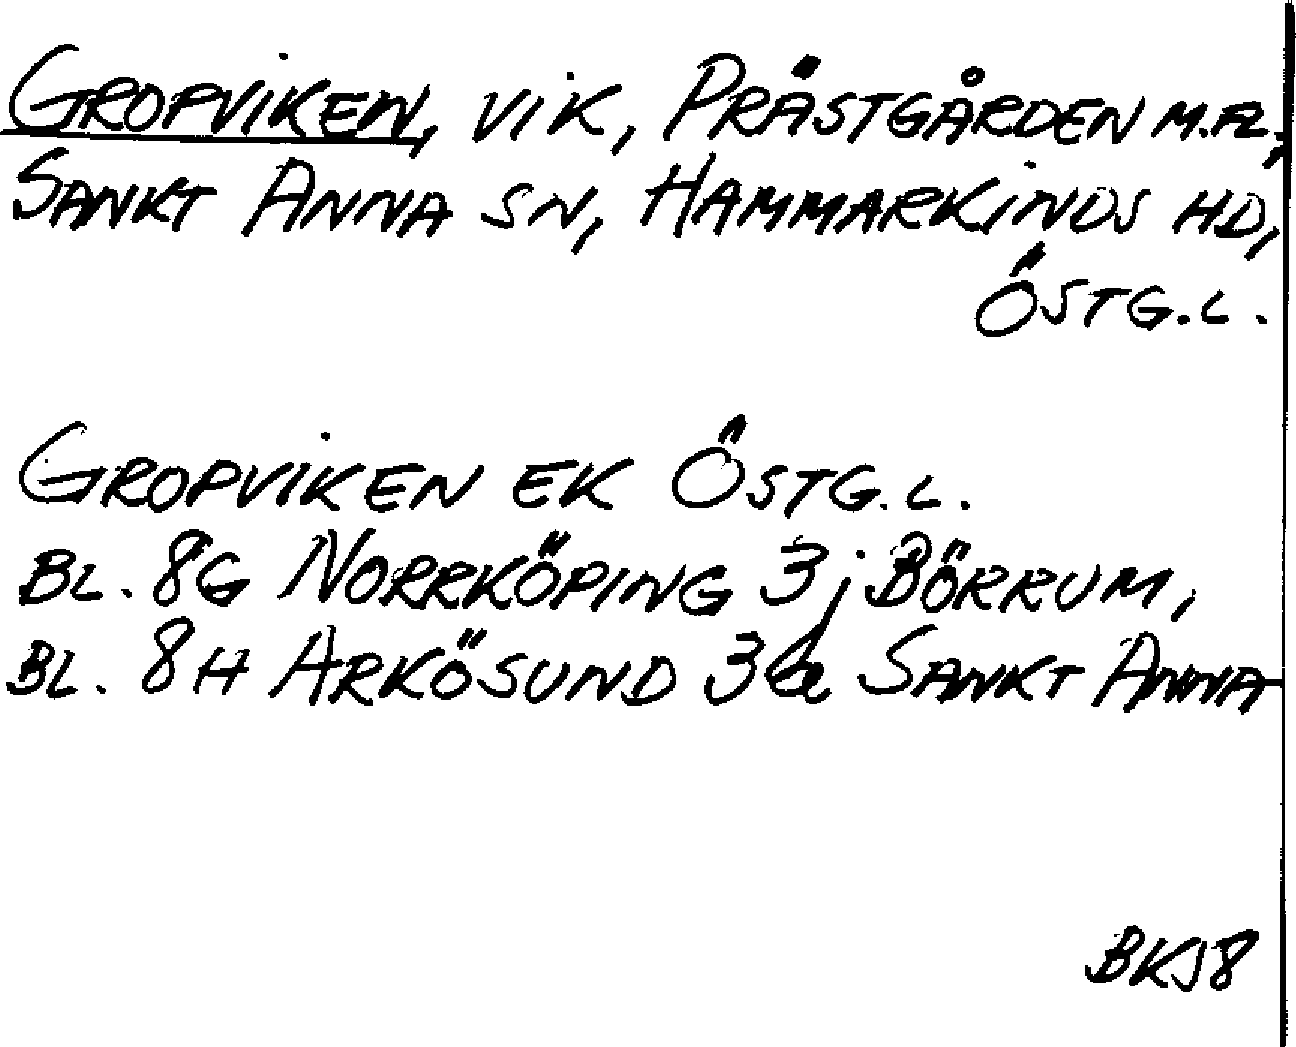 GROPVIKEN, VIK, PRÄSTGÅRDEN M.FL.,
SANKT ANNA SN, HAMMARKINDS HD,
ÖSTG.L.
GROPVIKEN EK ÖSTG.L.
BL. 8G NORRKÖPING 3j BÖRRUM,
BL. 8H ARKÖSUND 3a SANKT ANNA
BKJ8